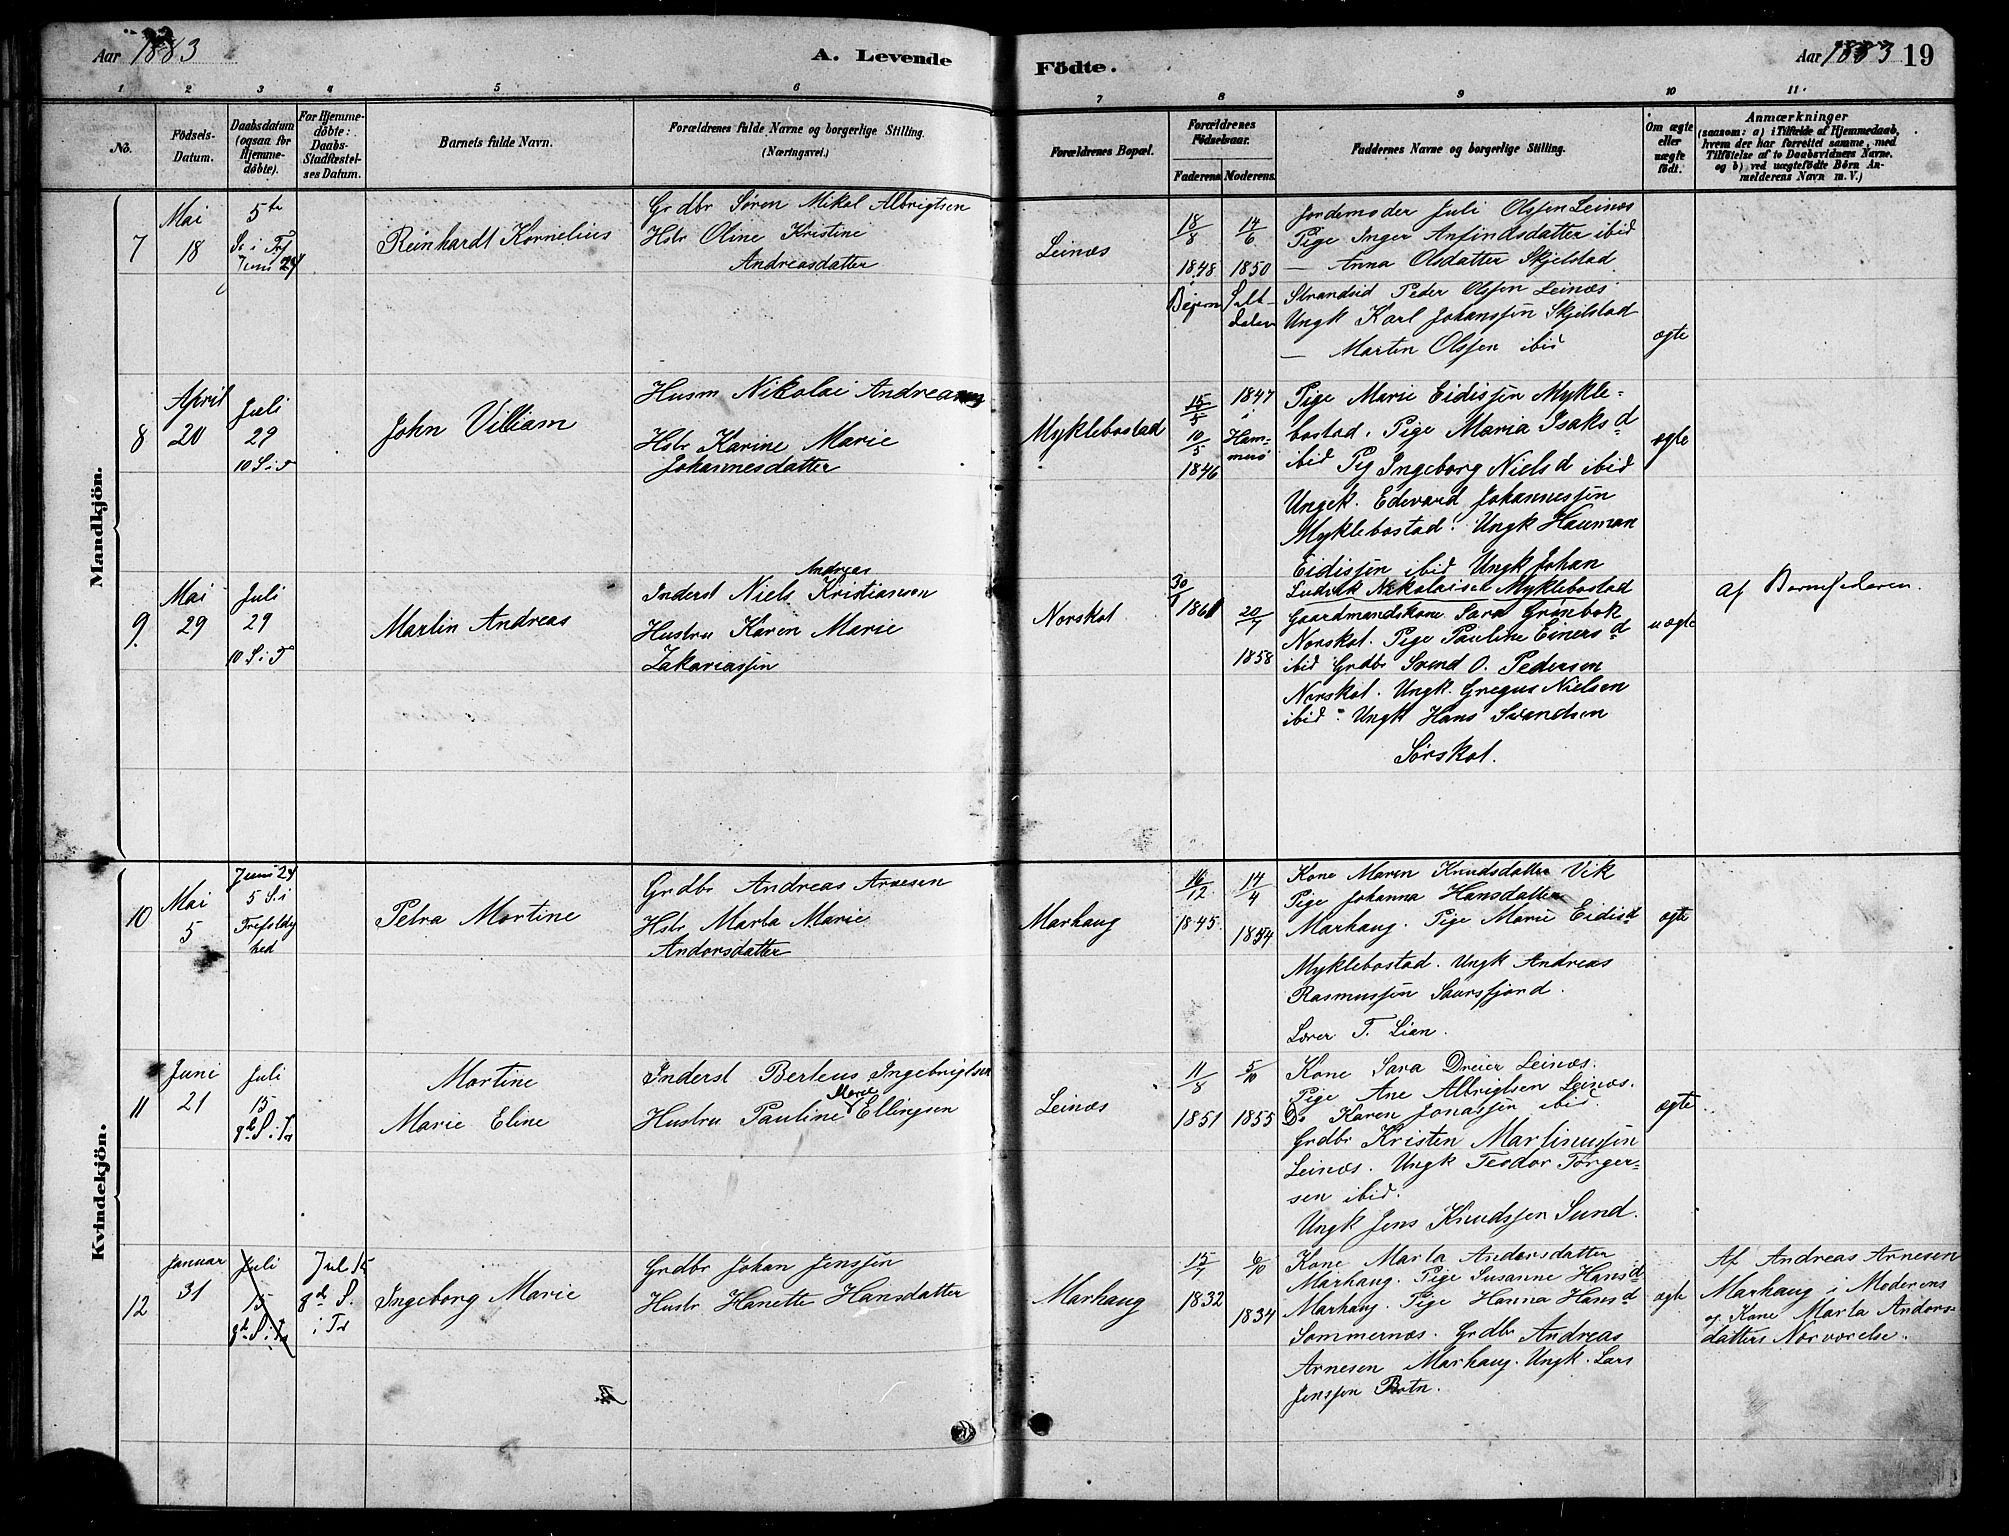 Aar 1883
A. Levende
Födte.
Aar 1883 19
1 2 3 4 5 6 7 8 9 10 11.
No.
Födsels-
Datum.
Daabsdatum
(ogsaa for
Hjemme-
döbte).
For Hjemme-
döbte:
Daabs-
Stadfæstel-
ses Datum.
Barnets fulde Navn.
Forældrenes fulde Navne og borgerlige Stilling.
(Næringsvei.)
Forældrenes Bopæl.
Forældrenes
Födselsaar.
Faderens. Moderens.
Faddernes Navne og borgerlige Stilling.
Om ægte
eller
uægte
födt.
Anmærkninger
(saasom: a) i Tilfælde af Hjemmedaab,
hvem der har forrettet samme, med
Tilföielse af to Daabsvidners Navne.
og b) ved uægtefödte Börn An-
melderens Navn m. V.)
Mandkjön.
7
Mai
18
5te
S. i Tref
Juni 24
Reinhardt Kornelius
Grdbr Søren Mikal Albrigtsen
Hstr Oline Kristine
Andreasdatter
Leinæs
18/8
1848
Bejern
14/6
1850
Salt-
dalen
Jordemoder Juli Olssen Leinæs
Pige Inger Anfindsdatter ibid
— Anna Olsdatter Skjelstad
Strandsid Peder Olssen Leinæs
Ungk Karl Johanssen Skjelstad
— Martin Olssen ibid
ægte
8
April
20
Juli
29
10 S. i T
John Villiam
Husm Nikolai Andreassen
Hstr Karine Marie
Johannesdatter
Myklebostad
15/5
10/5
1846
1847
i
Ham-
merø
Pige Marie Eidissen Mykle-
bostad. Pige Maria Isaksd
ibid Pig Ingeborg Nielsd ibid
Ungk. Edevard Johannessen
Myklebostad. Ungk Hauman
Eidissen ibid Ungk Johan
Ludvik Nikolaisen Myklebostad
ægte
9.
Mai
29
Juli
29
10 S. i T
Martin Andreas
Andreas
Inderst Niels Kristiansen
Hustru Karen Marie
Zakariassen
Norskot
30/
1861
20/7
1858
Gaardmandskone Sara Grønbek
Norskot. Pige Pauline Einersd
ibid Grdbr Svend O. Pedersen
Norskot. Ungk. Gregus Nielsen
ibid. Ungk Hans Svendsen
Sørskot.
uægte
Af Barnefaderen.
Kvindekjön.
10
Mai
5
Juni 24
5 S. i
Trefoldig
hed
Petra Martine
Grdbr Andreas Arnesen
Hstr Marta Marie
Andorsdatter
Marhaug
16/12
1845.
14/4
1854
Kone Maren Knudsdatter Vik
Pige Johanna Hansdatter
Marhaug. Pige Marie Eidisd
Myklebostad. Ungk Andreas
Rasmussen Saursfjord.
Lærer T. Lian.
ægte
11
Juni
21
Juli
15
8de S. i Tr
Martine
Marie Eline
Inderst Berteus Ingebrigtsen
Marie
Hustru Pauline Ellingsen
Leinæs
11/8
1851
5/10
1855
Kone Sara Dreier Leinæs.
Pige Ane Albrigtsen Leinæs.
Do Karen Jonassen ibid
Grdbr Kristen Martinussen
Leinæs. Ungk Teodor Torger-
sen ibid.
Ungk Jens Knudssen Sund.
ægte
12
Januar
31
Juli
15
8de S. i Tr
Jul 15
8de S.
i Tr
Ingeborg Marie
Grdbr Johan Jenssen
Hustr Hanette Hansdatter
Marhaug
15/7
1832
6/10
1834
Kone Marta Andorsdatter
Marhaug. Pige Susanne Hansd
Marhaug. Pige Hanna Hansd
Sommernæs. Grdbr Andreas
Arnesen Marhaug. Ungk. Lars
Jenssen Botn.
ægte
Af Andreas Arnesen
Marhaug i Moderens
og Kone Marta Andors-
datters Nærværelse.